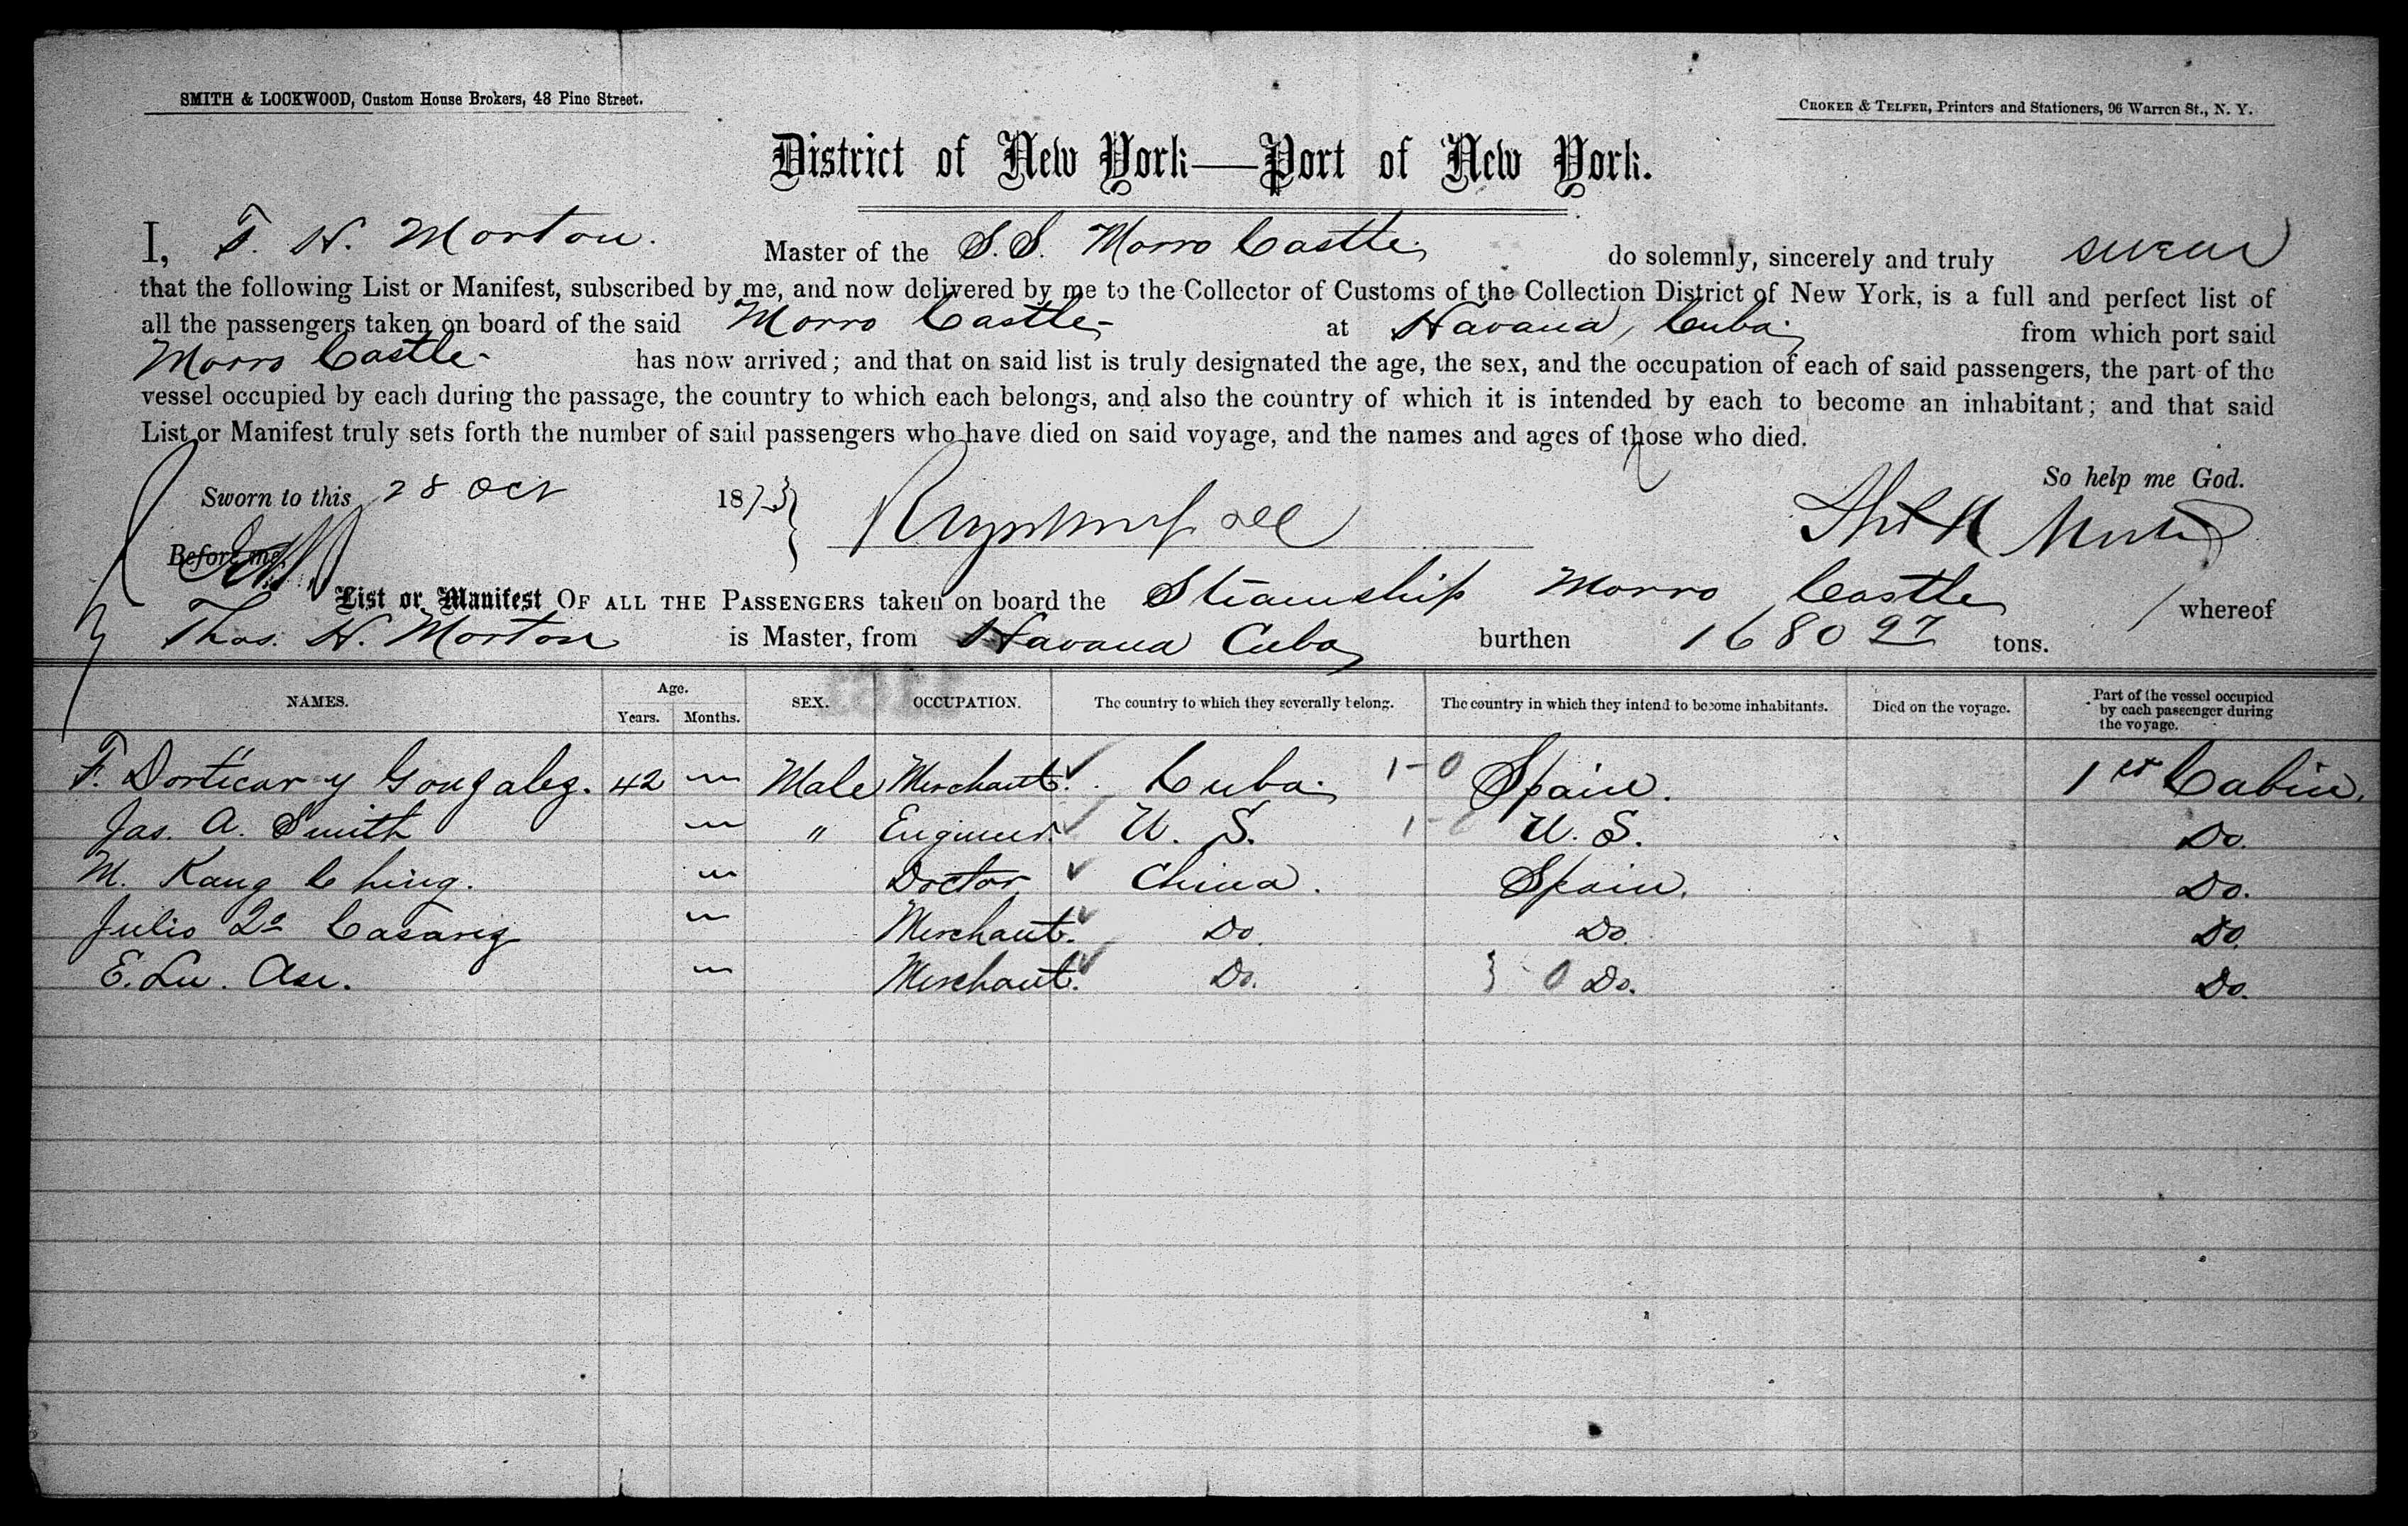 SMITH & LOCKWOOD, Custom House Brokers, 48 Pine Street.
CROKER & TELFER, Printers and Stationers, 96 Warren St., N. Y.
District of New York—Port of New York.
I, T. H. Morton. Master of the S.S. Morro Castle do solemnly, sincerely and truly swear
that the following List or Manifest, subscribed by me, and now delivered by me to the Collector of Customs of the Collection District of New York, is a full and perfect list of
all the passengers taken on board of the said Morro Castle at Havana, Cuba from which port said
Morro Castle has now arrived; and that on said list is truly designated the age, the sex, and the occupation of each of said passengers, the part of the
vessel occupied by each during the passage, the country to which each belongs, and also the country of which it is intended by each to become an inhabitant; and that said
List or Manifest truly sets forth the number of said passengers who have died on said voyage, and the names and ages of those who died.
So help me God.
Sworn to this 28 Oct 1873
Before me,
List or Manifest OF ALL THE PASSENGERS taken on board the Steamship Morro Castle whereof
Thos. H. Morton is Master, from Havana Cuba burthen 1680 27 tons.
NAMES. Age. Years. Months. SEX. OCCUPATION. The country to which they severally belong. The country in which they intend to become inhabitants. Died on the voyage. Part of the vessel occupied by each passenger during the voyage.
F. Dorticar y Gonzalez. 42 Male Merchant. Cuba. 1-0 Spain. 1st Cabin.
Jas. A. Smith " Engineer. U. S. U. S. Do.
M. Kang Ching. Doctor China. Spain. Do.
Julio Casarig Merchant. Do. Do. Do.
E. Lu. Merchant. Do. Do. Do.